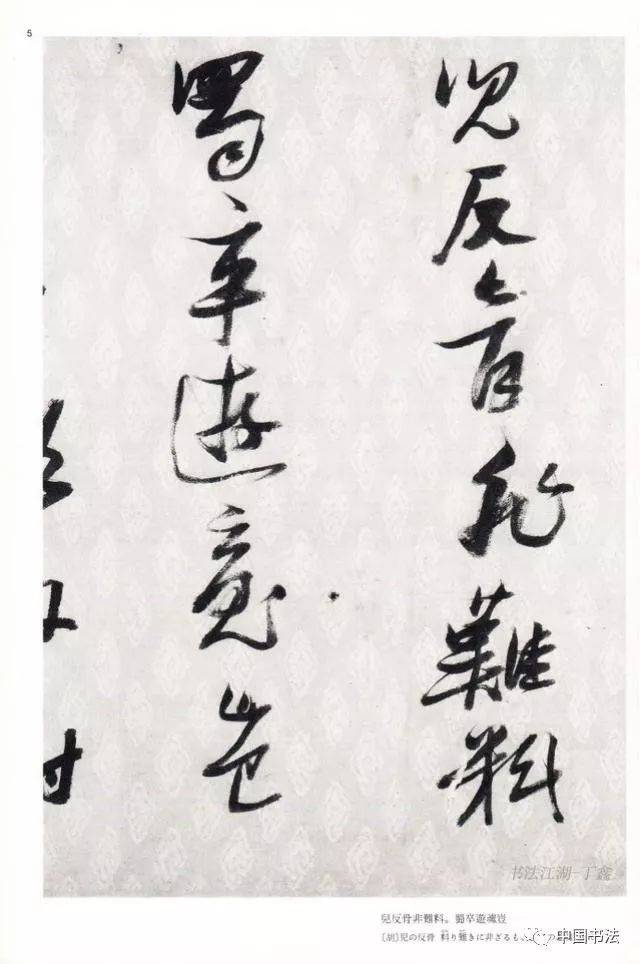 5
兒反骨非難料
蜀卒遊魂豈
书法江湖-丁鑫
兒反骨非難料。蜀卒遊魂豈
〔胡〕兒の反骨 料り難きに非ざるも、
中国书法